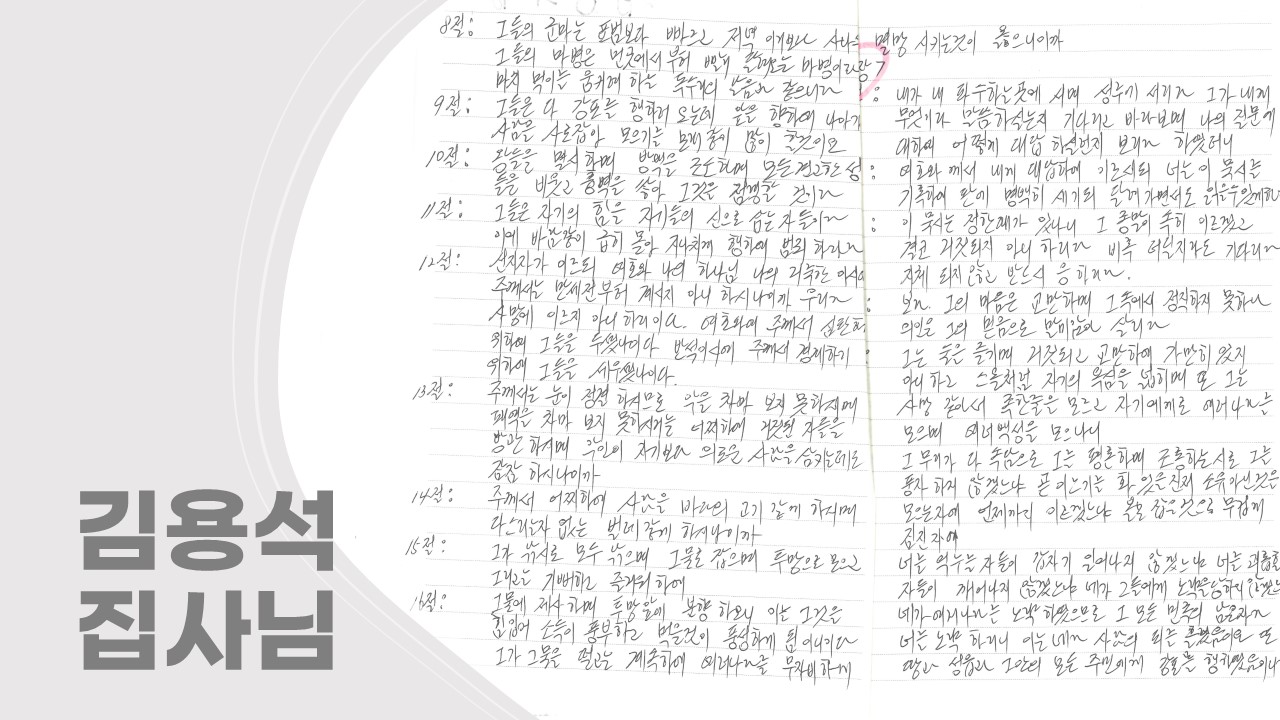 8절: 그들의 군마는 표범보다 빠르고 저녁 이리보다 사나우
그들의 마병은 먼곳에서부터 빨리 달려오는 마병이라
마치 먹이를 움키려 하는 독수리의 날음과 같으니라
9절: 그들은 다 강포를 행하러 오는데 앞을 향하여 나아가
사람을 사로잡아 모으기를 모래 같이 많이 할것이요
10절: 왕들을 멸시하며 방백을 조소하며 모든 견고한 성
들을 비웃고 흉벽을 쌓아 그것을 점령할 것이라
11절: 그들은 자기의 힘을 자기들의 신으로 삼는 자들이라
이에 바람같이 급히 몰아 지나치게 행하여 범죄 하리라
12절: 선지자가 이르되 여호와 나의 하나님 나의 거룩한 이시여
주께서는 만세전부터 계시지 아니 하시나이까 우리가
사망에 이르지 아니 하리이다. 여호와여 주께서 심판하
위하여 그들을 두셨나이다 반석이시여 주께서 경계하기
위하여 그들을 세우셨나이다.
13절: 주께서는 눈이 정결 하시므로 악을 차마 보지 못하시며
패역을 차마 보지 못하시거늘 어찌하여 거짓된 자들을
방관 하시며 악인이 자기보다 의로운 사람을 삼키는데도
잠잠 하시나이까
14절: 주께서 어찌하여 사람을 바다의 고기 같게 하시며
다스리는자 없는 벌레 같게 하시나이까
15절: 그가 낚시로 모두 낚으며 그물로 잡으며 투망으로 모으고
그리고는 기뻐하고 즐거워 하여
16절: 그물에 제사하며 투망 앞에 분향 하오니 이는 그것을
힘입어 소득이 풍부하고 먹을것이 풍성하게 됨이니이다
그가 그물을 떨고는 계속하여 여러나라를 무자비하게
멸망 시키는것이 옳으니이까
장
: 내가 내 파수하는 곳에 서며 성루에 서리라 그가 내게
무엇이라 말씀하실는지 기다리고 바라보며 나의 질문에
대하여 어떻게 대답 하실런지 보리라 하였더니
: 여호와 께서 내게 대답하여 이르시되 너는 이 묵시를
기록하여 판에 명백히 새기되 달려 가면서도 읽을수있게하라
: 이 묵시는 정한때가 있나니 그 종말이 속히 이르겠고
결코 거짓되지 아니 하리라 비록 더딜지라도 기다리라
지체 되지않고 반드시 응 하리라.
: 보라 그의 마음은 교만하며 그 속에서 정직하지 못하나
의인은 그의 믿음으로 말미암아 살리라
: 그는 술을 즐기며 거짓되고 교만하여 가만히 있지
아니 하고 스올처럼 자기의 욕심을 넓히며 또 그는
사망 같아서 족한줄을 모르고 자기에게로 여러나라를
모으며 여러백성을 모으나니
그 무리가 다 속담으로 그를 평론하며 조롱하는 시로 그를
풍자 하지 않겠느냐 곧 이르기를 화 있을진저 자기 소유 아닌것을
모으는자여 언제까지 이르겠느냐 볼모 잡은것으로 무겁게
짐진자여
너를 억누를 자들이 갑자기 일어나지 않겠느냐 너를 괴롭힐
자들이 깨어나지 않겠느냐 네가 그들에게 노략을 당하지 않겠느냐
네가 여러나라를 노략 하였으므로 그 모든 민족의 남은자가
너를 노략 하리니 이는 네가 사람의 피를 흘렸음이요 또
땅과 성읍과 그안의 모든 주민에게 강포를 행하였음이니
김용석
집사님